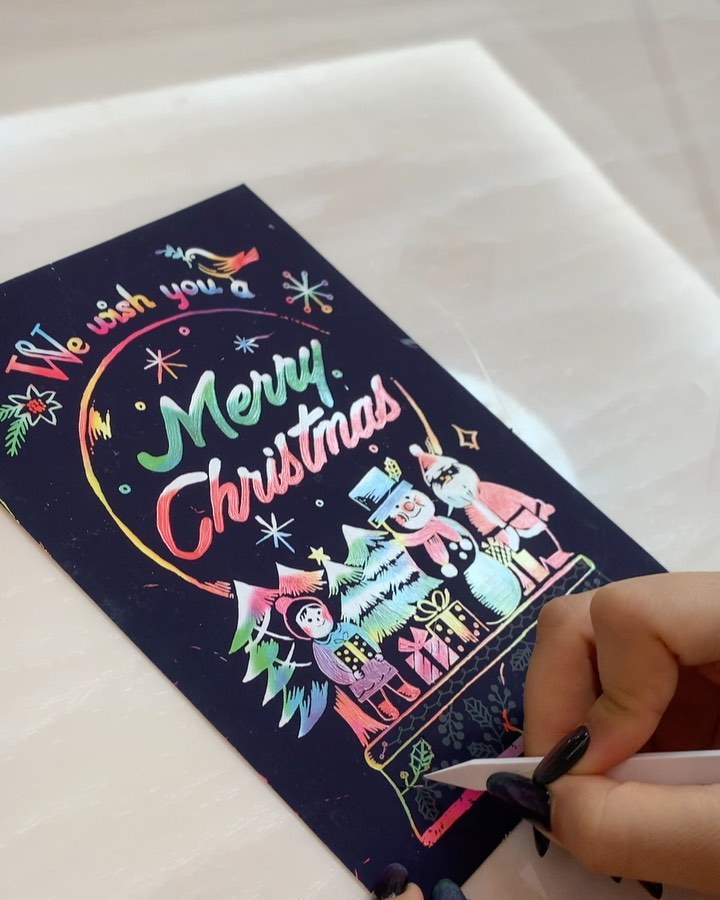 We wish you a
Merry
Christmas